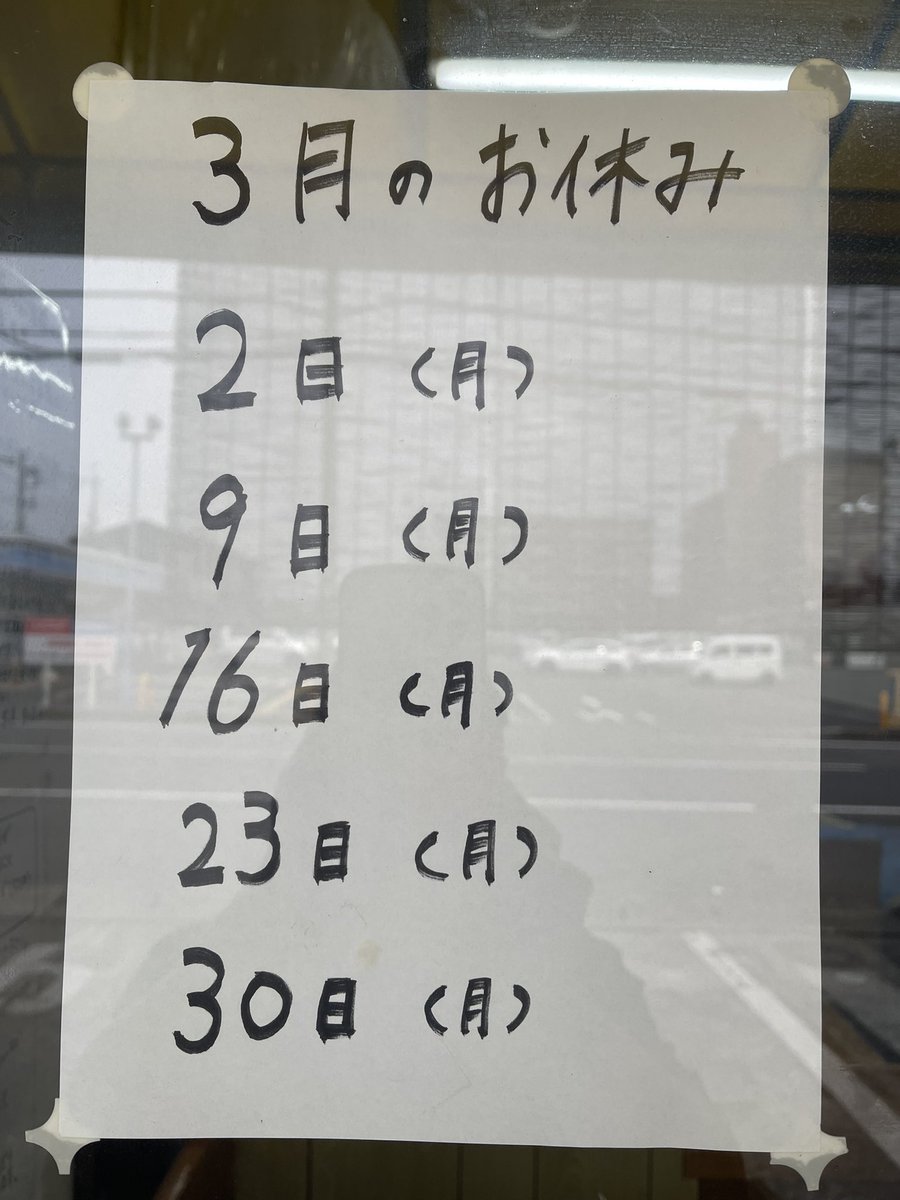 3月のお休み
2日(月)
9日(月)
16日(月)
23日(月)
30日(月)